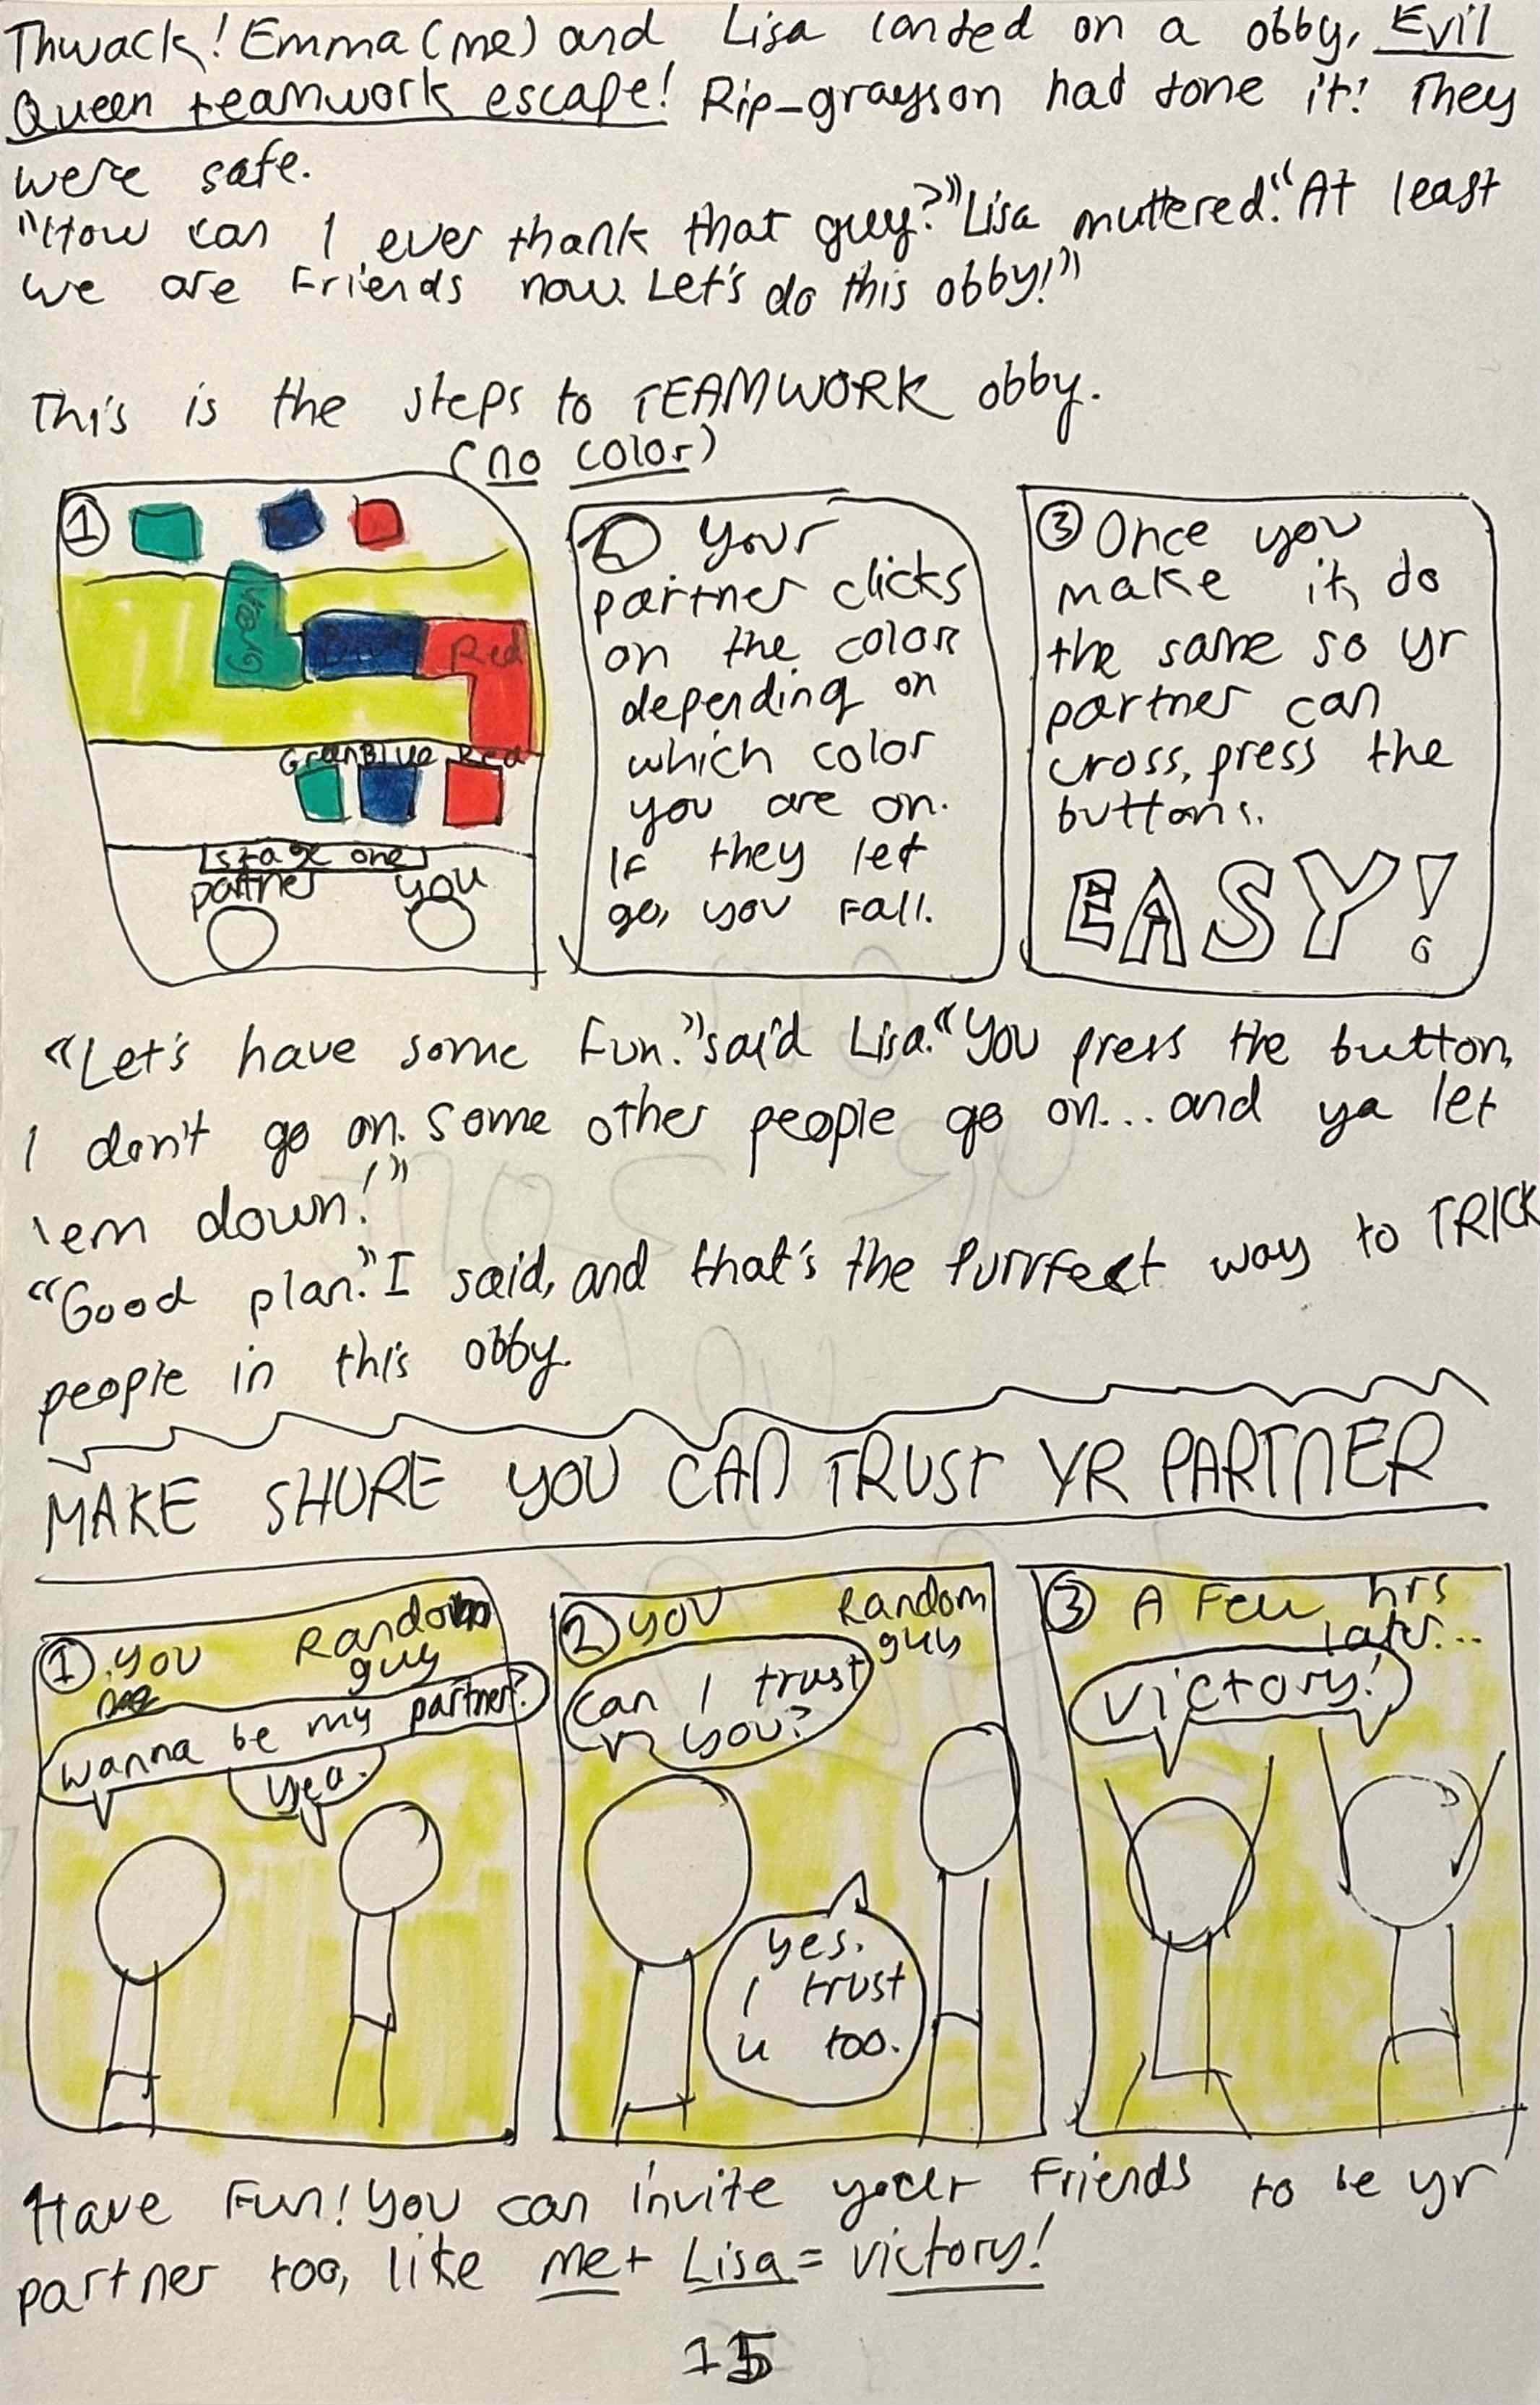 Thwack! Emma (me) and Lisa landed on a obby, Evil
Queen teamwork escape! Rip-grayson had done it! They
were safe.
"How can I ever thank that guy?" Lisa muttered. "At least
we are Friends now. Let's do this obby!"
This is the steps to TEAMWORK obby.
(no color)
1
Green
Blue
Red
Green Blue Red
stage one
partner you
2 Your
partner clicks
on the color
depending on
which color
you are on.
If they let
go, you Fall.
3 Once you
make it, do
the same so yr
partner can
cross, press the
buttons.
EASY!
"Let's have some Fun." said Lisa. "You press the button,
I don't go on. Some other people go on... and ya let
'em down!"
"Good plan." I said, and that's the purrfect way to TRICK
people in this obby.
MAKE SHURE YOU CAN TRUST YR PARTNER
1. you Random
guy
wanna be my partner?
yea.
2 you Random
guy
Can I trust
you?
yes.
I trust
u too.
3 A Few hrs
later...
Victory!
Have Fun! You can invite your Friends to be yr
partner too, like me + Lisa = victory!
15